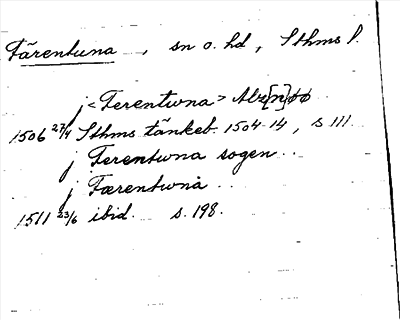 Färentuna, sn o. hd, Sthms l.
j <Terentwna>
1506 27/4 Sthms tänkeb. 1504-14, s 111
j Terentwna sogen..
j Færentwna..
1511 23/6 ibid. s. 198.